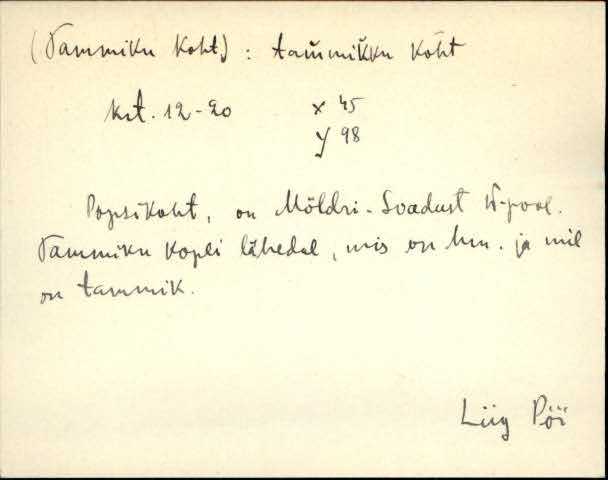 (Tammiku Koht) : tam̆mik̆ku kŏht
krt. 12-20 x 45
y 98
Popsikoht, on Möldri-Soadust N-pool.
Tammiku Kopli lähedal, mis on hm. ja mil
on tammik.
Liig Pöi